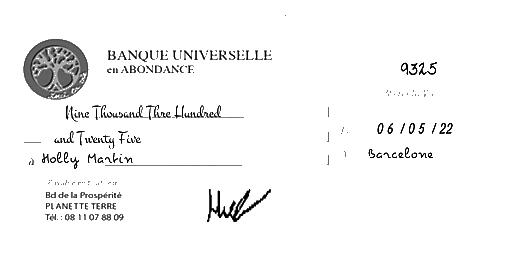 BANQUE UNIVERSELLE
en ABONDANCE
9325
Nine Thousand Thre Hundred
and Twenty Five
06/05/22
à Holly Martin
Barcelone
Bd de la Prospérité
PLANETTE TERRE
Tél. : 08 11 07 88 09